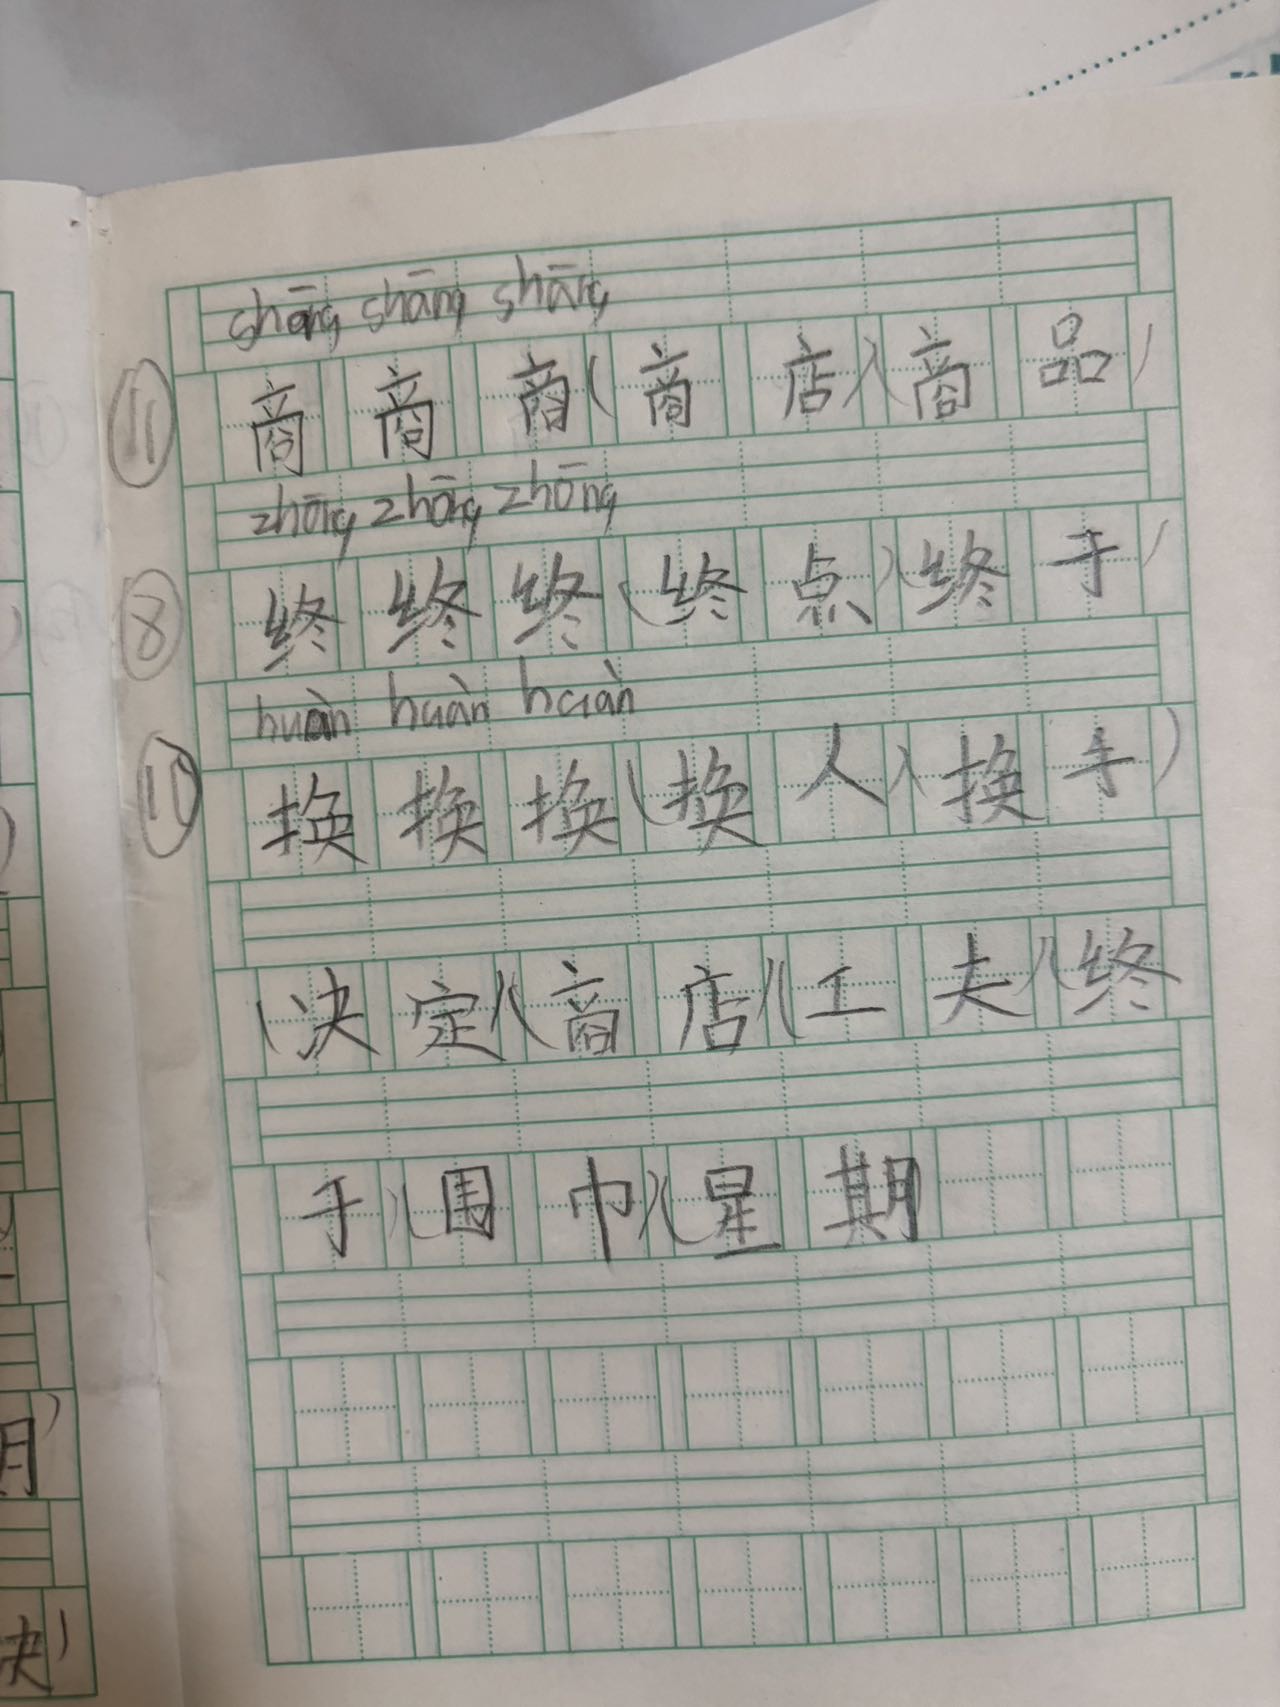 shāng shāng shāng
⑪ 商 商 商(商 店)(商 品)
zhōng zhōng zhōng
⑧ 终 终 终(终 点)(终 于)
huàn huàn huàn
⑩ 换 换 换(换 人)(换 手)
(决 定)(商 店)(工 夫)(终
于)(围 巾)(星 期
月)
决)